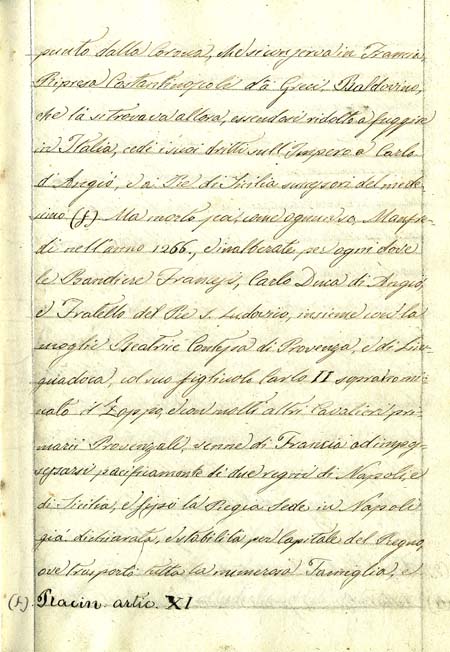 punto dalla Corona, che si conserva in Francia.
Ripresa Costantinopoli da Greci, Baldovino,
che là si trovava allora, essendosi ridotto a fuggire
in Italia, cedè i suoi dritti sull'Impero a Carlo
d'Angiò, e ai Re di Sicilia successori del mede-
simo (f). Ma morto poi, come ognun sa, Manfre-
di nell'anno 1266., e inalberate per ogni dove
le Bandiere Francesi, Carlo Duca di Angiò,
e Fratello del Re S. Ludovico, insieme con la
moglie Beatrice Contessa di Provenza, e di Lin-
guadoca, col suo figliuolo Carlo II sopranomi-
nato il Zoppo, e con molti altri Cavalieri pri-
marii Provenzali, venne di Francia ad impos-
sessarsi pacificamente di due regni di Napoli, e
di Sicilia, e fissò la Regia Sede in Napoli
già dichiarata, e stabilita per Capitale del Regno,
ove trasportò tutta la numerosa Famiglia, e
(f). artic. XI